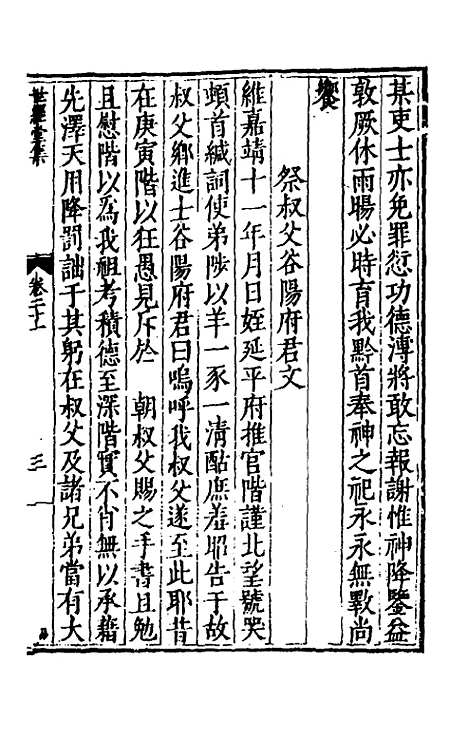 某吏士亦免罪愆功德溥將敢忘報謝惟神降鑒益
敦厥休雨暘必時育我黔首奉神之祀永永無斁尚
饗
祭叔父谷陽府君文
維嘉靖十一年月日姪延平府推官階謹北望號哭
頓首緘詞使弟陟以羊一豕一清酤庶羞昭告于故
叔父鄉進士谷陽府君曰嗚呼我叔父遂至此耶昔
在庚寅階以狂愚見斥於 朝叔父賜之手書且勉
且慰階以為我祖考積德至深階實不肖無以承藉
先澤天用降罰詘于其躬在叔父及諸兄弟當有大
世經堂集
卷二十一
三